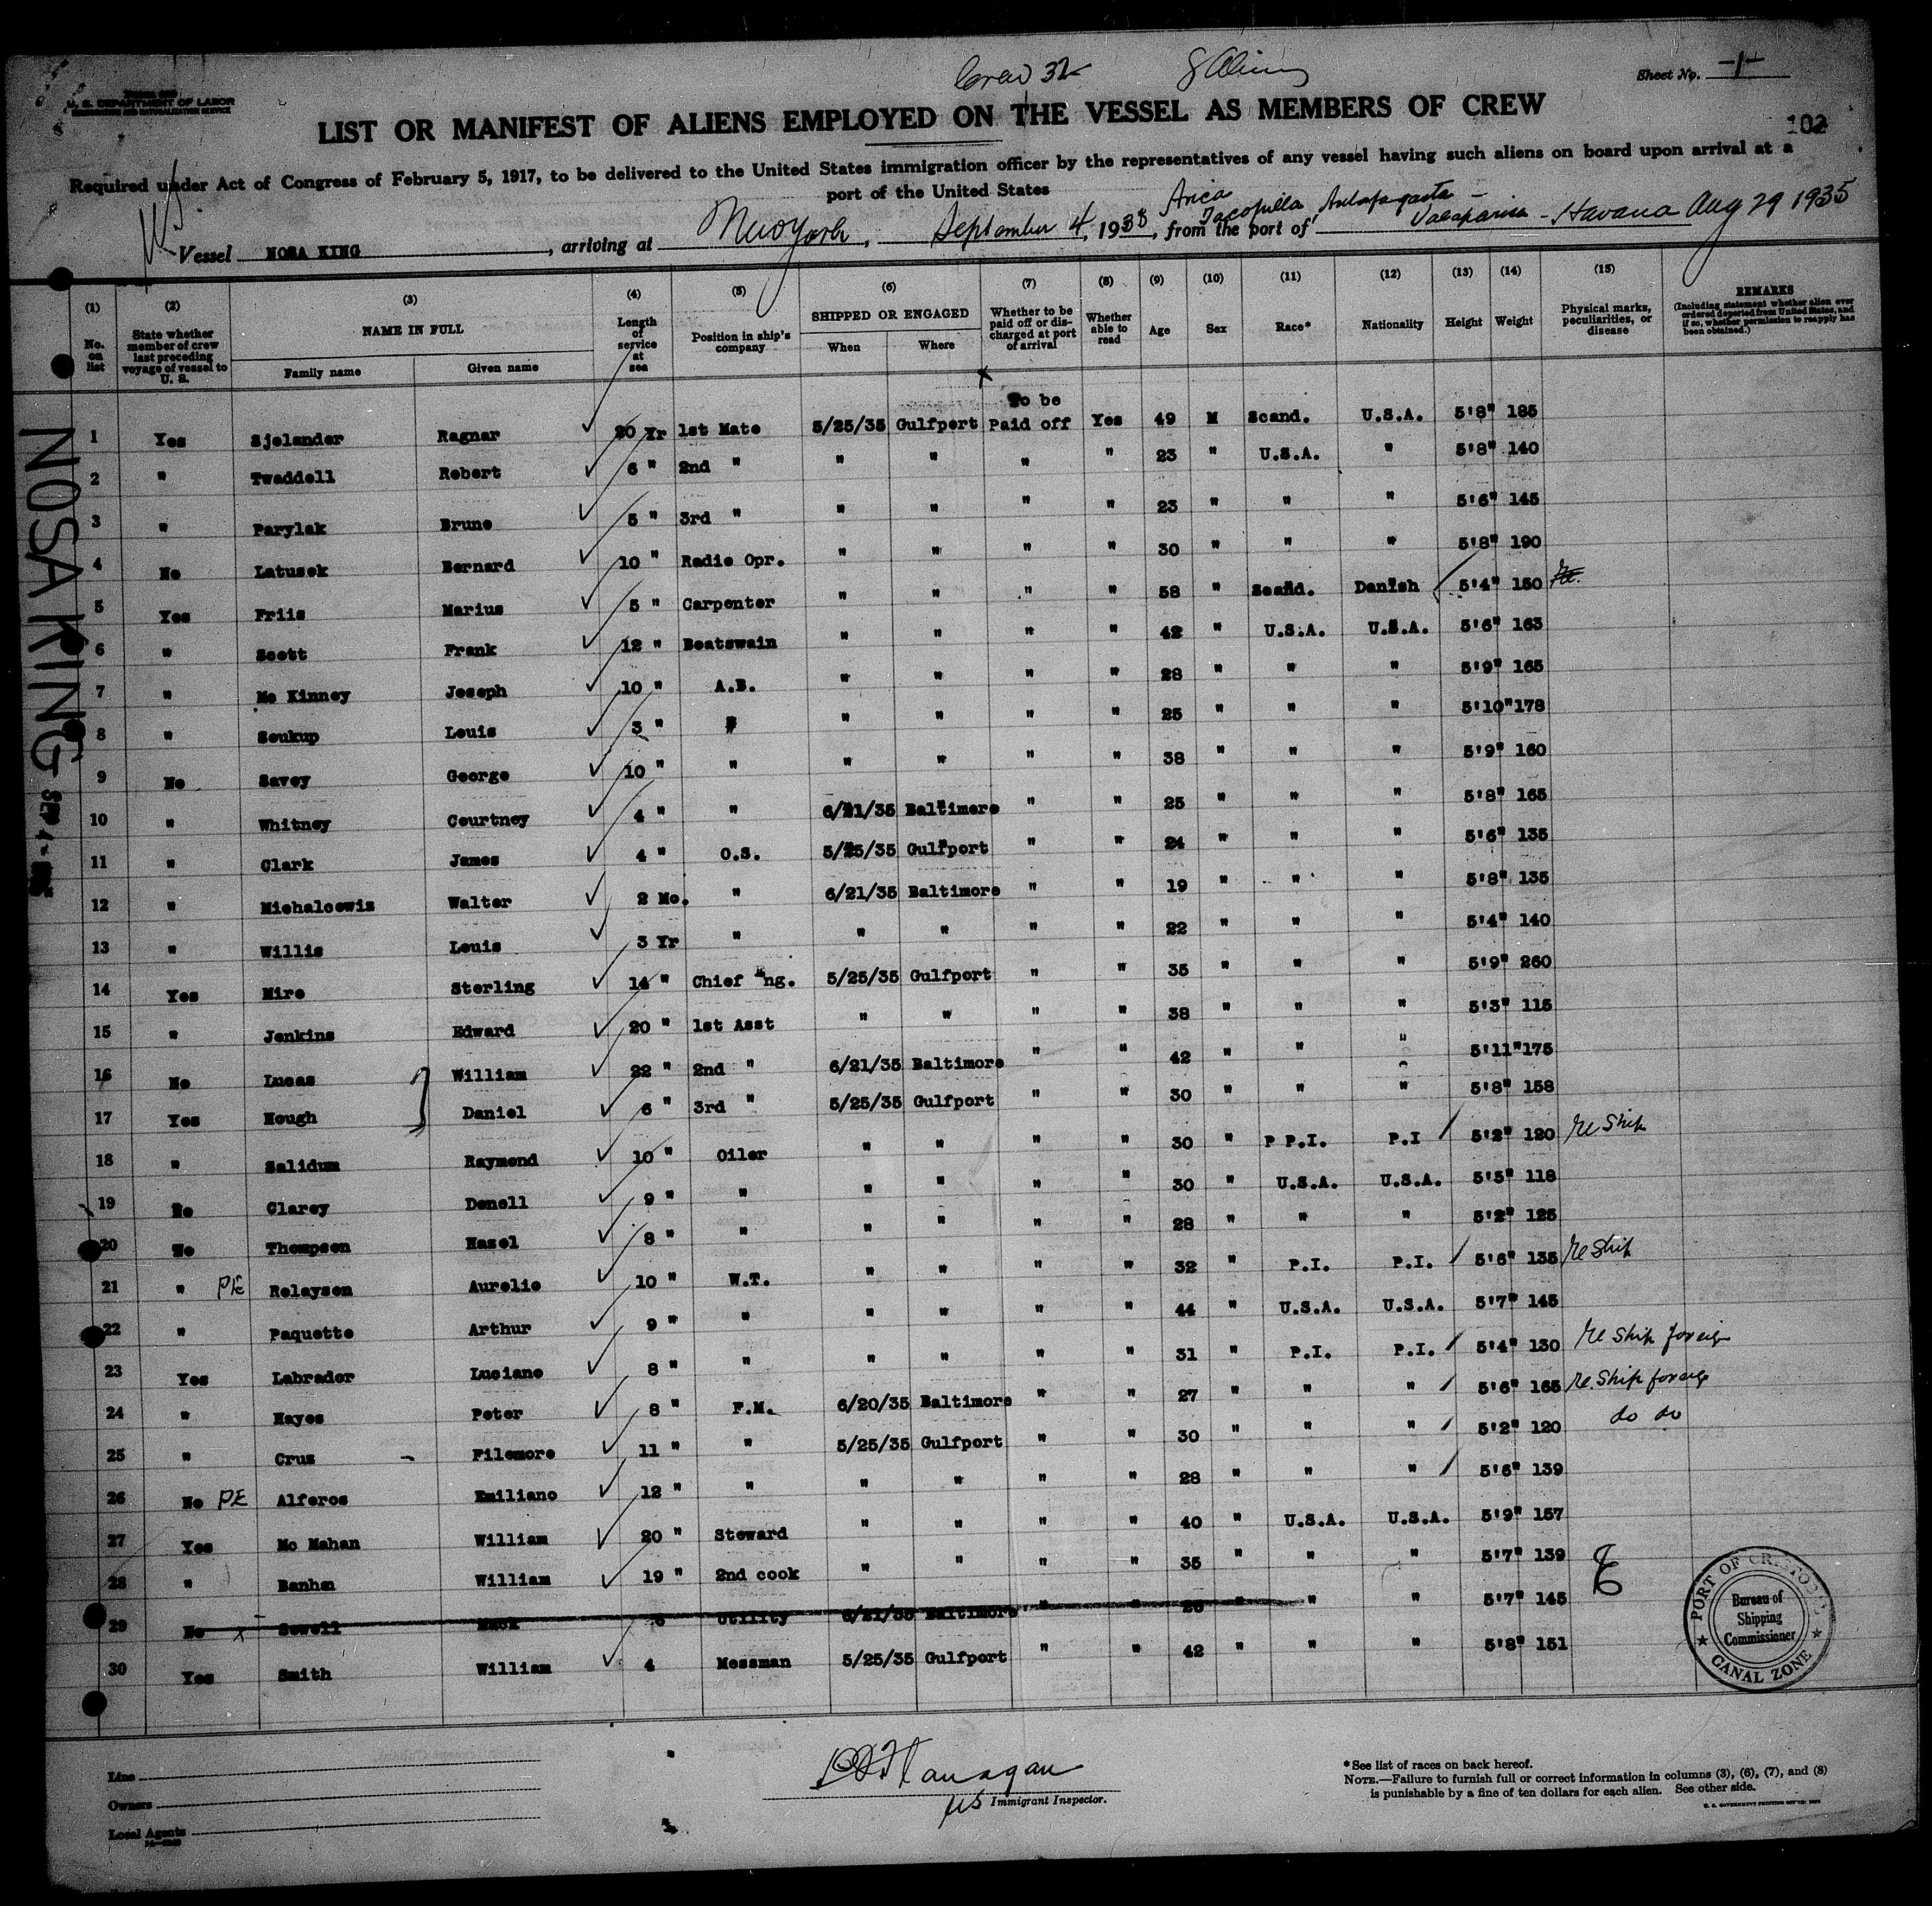 Crew 32 8 Aliens
Sheet No. -1-
U. S. DEPARTMENT OF LABOR
IMMIGRATION AND NATURALIZATION SERVICE
LIST OR MANIFEST OF ALIENS EMPLOYED ON THE VESSEL AS MEMBERS OF CREW
102
Required under Act of Congress of February 5, 1917, to be delivered to the United States immigration officer by the representatives of any vessel having such aliens on board upon arrival at a
port of the United States
Arica
Vessel NOSA KING, arriving at New York, September 4, 1935, from the port of Tocopilla Antofagasta - Valaparisa - Havana Aug 29 1935
(1) (2) (3) (4) (5) (6) (7) (8) (9) (10) (11) (12) (13) (14) (15)
No. on list State whether member of crew last preceding voyage of vessel to U. S. NAME IN FULL Family name Given name Length of service at sea Position in ship's company SHIPPED OR ENGAGED When Where Whether to be paid off or discharged at port of arrival Whether able to read Age Sex Race* Nationality Height Weight Physical marks, peculiarities, or disease REMARKS (Including statement whether alien ever ordered deported from United States, and if so, whether permission to reapply has been obtained.)
To be
1 Yes Sjolander Ragnar 20 Yr 1st Mate 5/25/35 Gulfport Paid off Yes 49 M Scand. U.S.A. 5'8" 185
2 " Twaddell Robert 6 " 2nd " " " " " 23 " U.S.A. " 5'8" 140
3 " Parylak Bruno 5 " 3rd " " " " " 23 " " " 5'6" 145
4 No Latusek Bernard 10 " Radio Opr. " " " " 30 " " " 5'8" 190
5 Yes Friis Marius 5 " Carpenter " " " " 58 " Scand. Danish 5'4" 150
6 " Scott Frank 12 " Boatswain " " " " 42 " U.S.A. U.S.A. 5'6" 163
7 " Mc Kinney Joseph 10 " A.B. " " " " 28 " " " 5'9" 165
8 " Soukup Louis 3 " " " " " " 25 " " " 5'10" 178
9 No Savoy George 10 " " " " " " 38 " " " 5'9" 160
10 " Whitney Courtney 4 " " 6/21/35 Baltimore " " 25 " " " 5'8" 165
11 " Clark James 4 " O.S. 5/25/35 Gulfport " " 24 " " " 5'6" 135
12 " Michalcewiz Walter 2 Mo. " 6/21/35 Baltimore " " 19 " " " 5'8" 135
13 " Willis Louis 3 Yr " " " " " 22 " " " 5'4" 140
14 Yes Mire Sterling 14 " Chief Eng. 5/25/35 Gulfport " " 35 " " " 5'9" 260
15 " Jenkins Edward 20 " 1st Asst " " " " 38 " " " 5'3" 115
16 No Lucas William 22 " 2nd " 6/21/35 Baltimore " " 42 " " " 5'11" 175
17 Yes Hough Daniel 6 " 3rd " 5/25/35 Gulfport " " 30 " " " 5'8" 158
18 " Salidum Raymond 10 " Oiler " " " " 30 " P P.I. P.I 5'2" 120 Re Ship
19 No Clarey Donell 9 " " " " " " 30 " U.S.A. U.S.A. 5'5" 118
20 No Thompson Hazel 8 " " " " " " 28 " " " 5'2" 125
21 " PE Relaysen Aurelio 10 " W.T. " " " " 32 " P.I. P.I. 5'6" 135 Re Ship
22 " Paquette Arthur 9 " " " " " " 44 " U.S.A. U.S.A. 5'7" 145
23 Yes Labrador Luciano 8 " " " " " " 31 " P.I. P.I. 5'4" 130 Re Ship foreign
24 " Hayes Peter 8 " F.M. 6/20/35 Baltimore " " 27 " " " 5'6" 165 Re. Ship foreign
25 " Crus Filemore 11 " " 5/25/35 Gulfport " " 30 " " " 5'2" 120 do do
26 No PE Alferos Emiliano 12 " " " " " " 28 " " " 5'6" 139
27 Yes Mc Mahan William 20 " Steward " " " " 40 " U.S.A. U.S.A. 5'9" 157
28 " Banhm William 19 " 2nd cook " " " " 35 " " " 5'7" 139
29 No x Sewell Mack 6 Utility 6/21/35 Baltimore " " " " " 5'7" 145
30 Yes Smith William 4 Messman 5/25/35 Gulfport " " 42 " " " 5'8" 151
NOSA KING SEP 4
PORT OF CRISTOBAL
Bureau of
Shipping
Commissioner
CANAL ZONE
Line
Owners
Local Agents
Flanagan
US Immigrant Inspector.
*See list of races on back hereof.
NOTE.—Failure to furnish full or correct information in columns (3), (6), (7), and (8)
is punishable by a fine of ten dollars for each alien. See other side.
U. S. GOVERNMENT PRINTING OFFICE